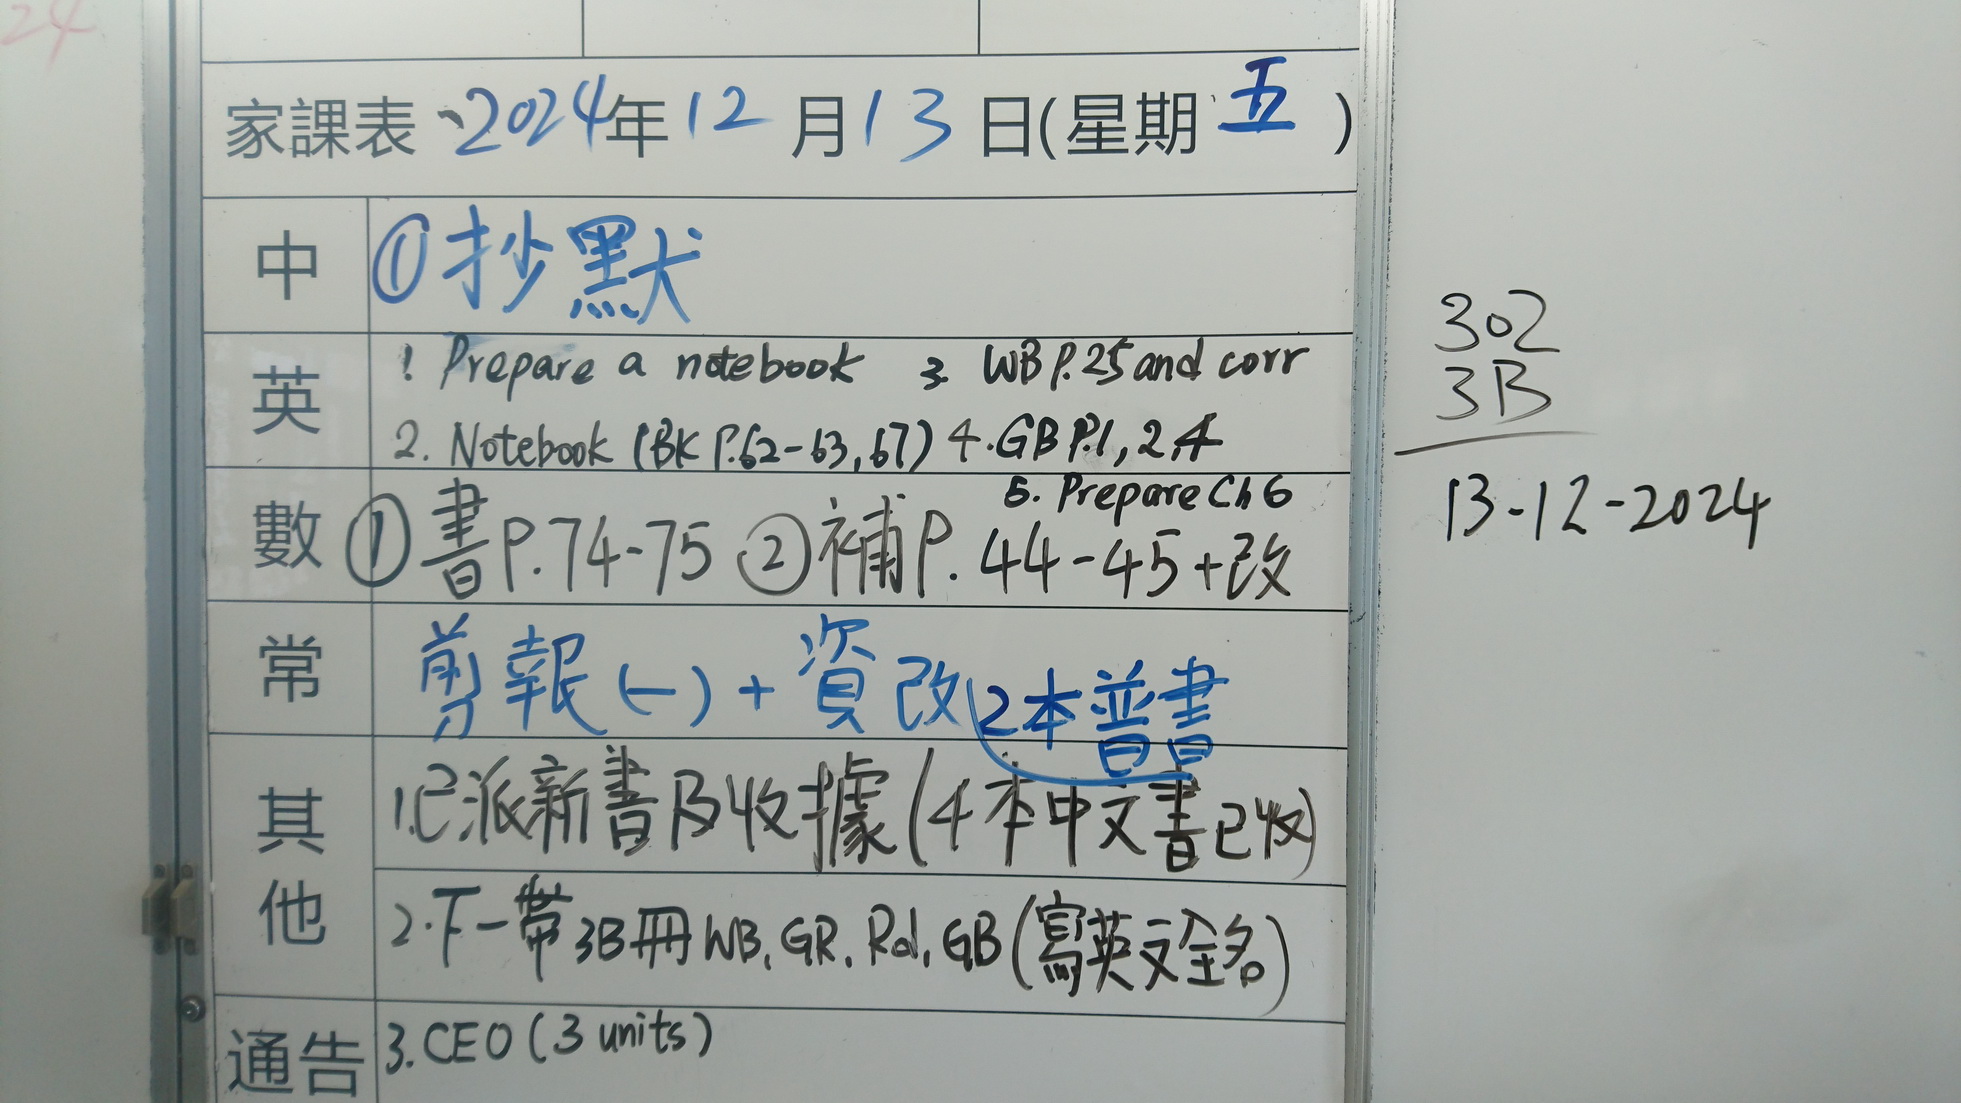 24
家課表 、2024年12月13日(星期五)
中 ①抄默
英 1 Prepare a notebook 3. WB P.25 and corr
2. Notebook (BK P.62-63, 67) 4. GB P.1, 2, 4
5. Prepare Ch 6
數 ①書P.74-75 ②補P. 44-45+改
常 剪報(一)+資改
2本普書
其他 1.已派新書及收據(4本中文書已收)
2.下一帶3B冊WB, GR, Rd, GB(寫英文全名)
通告 3. CEO (3 units)
302
3B
13-12-2024